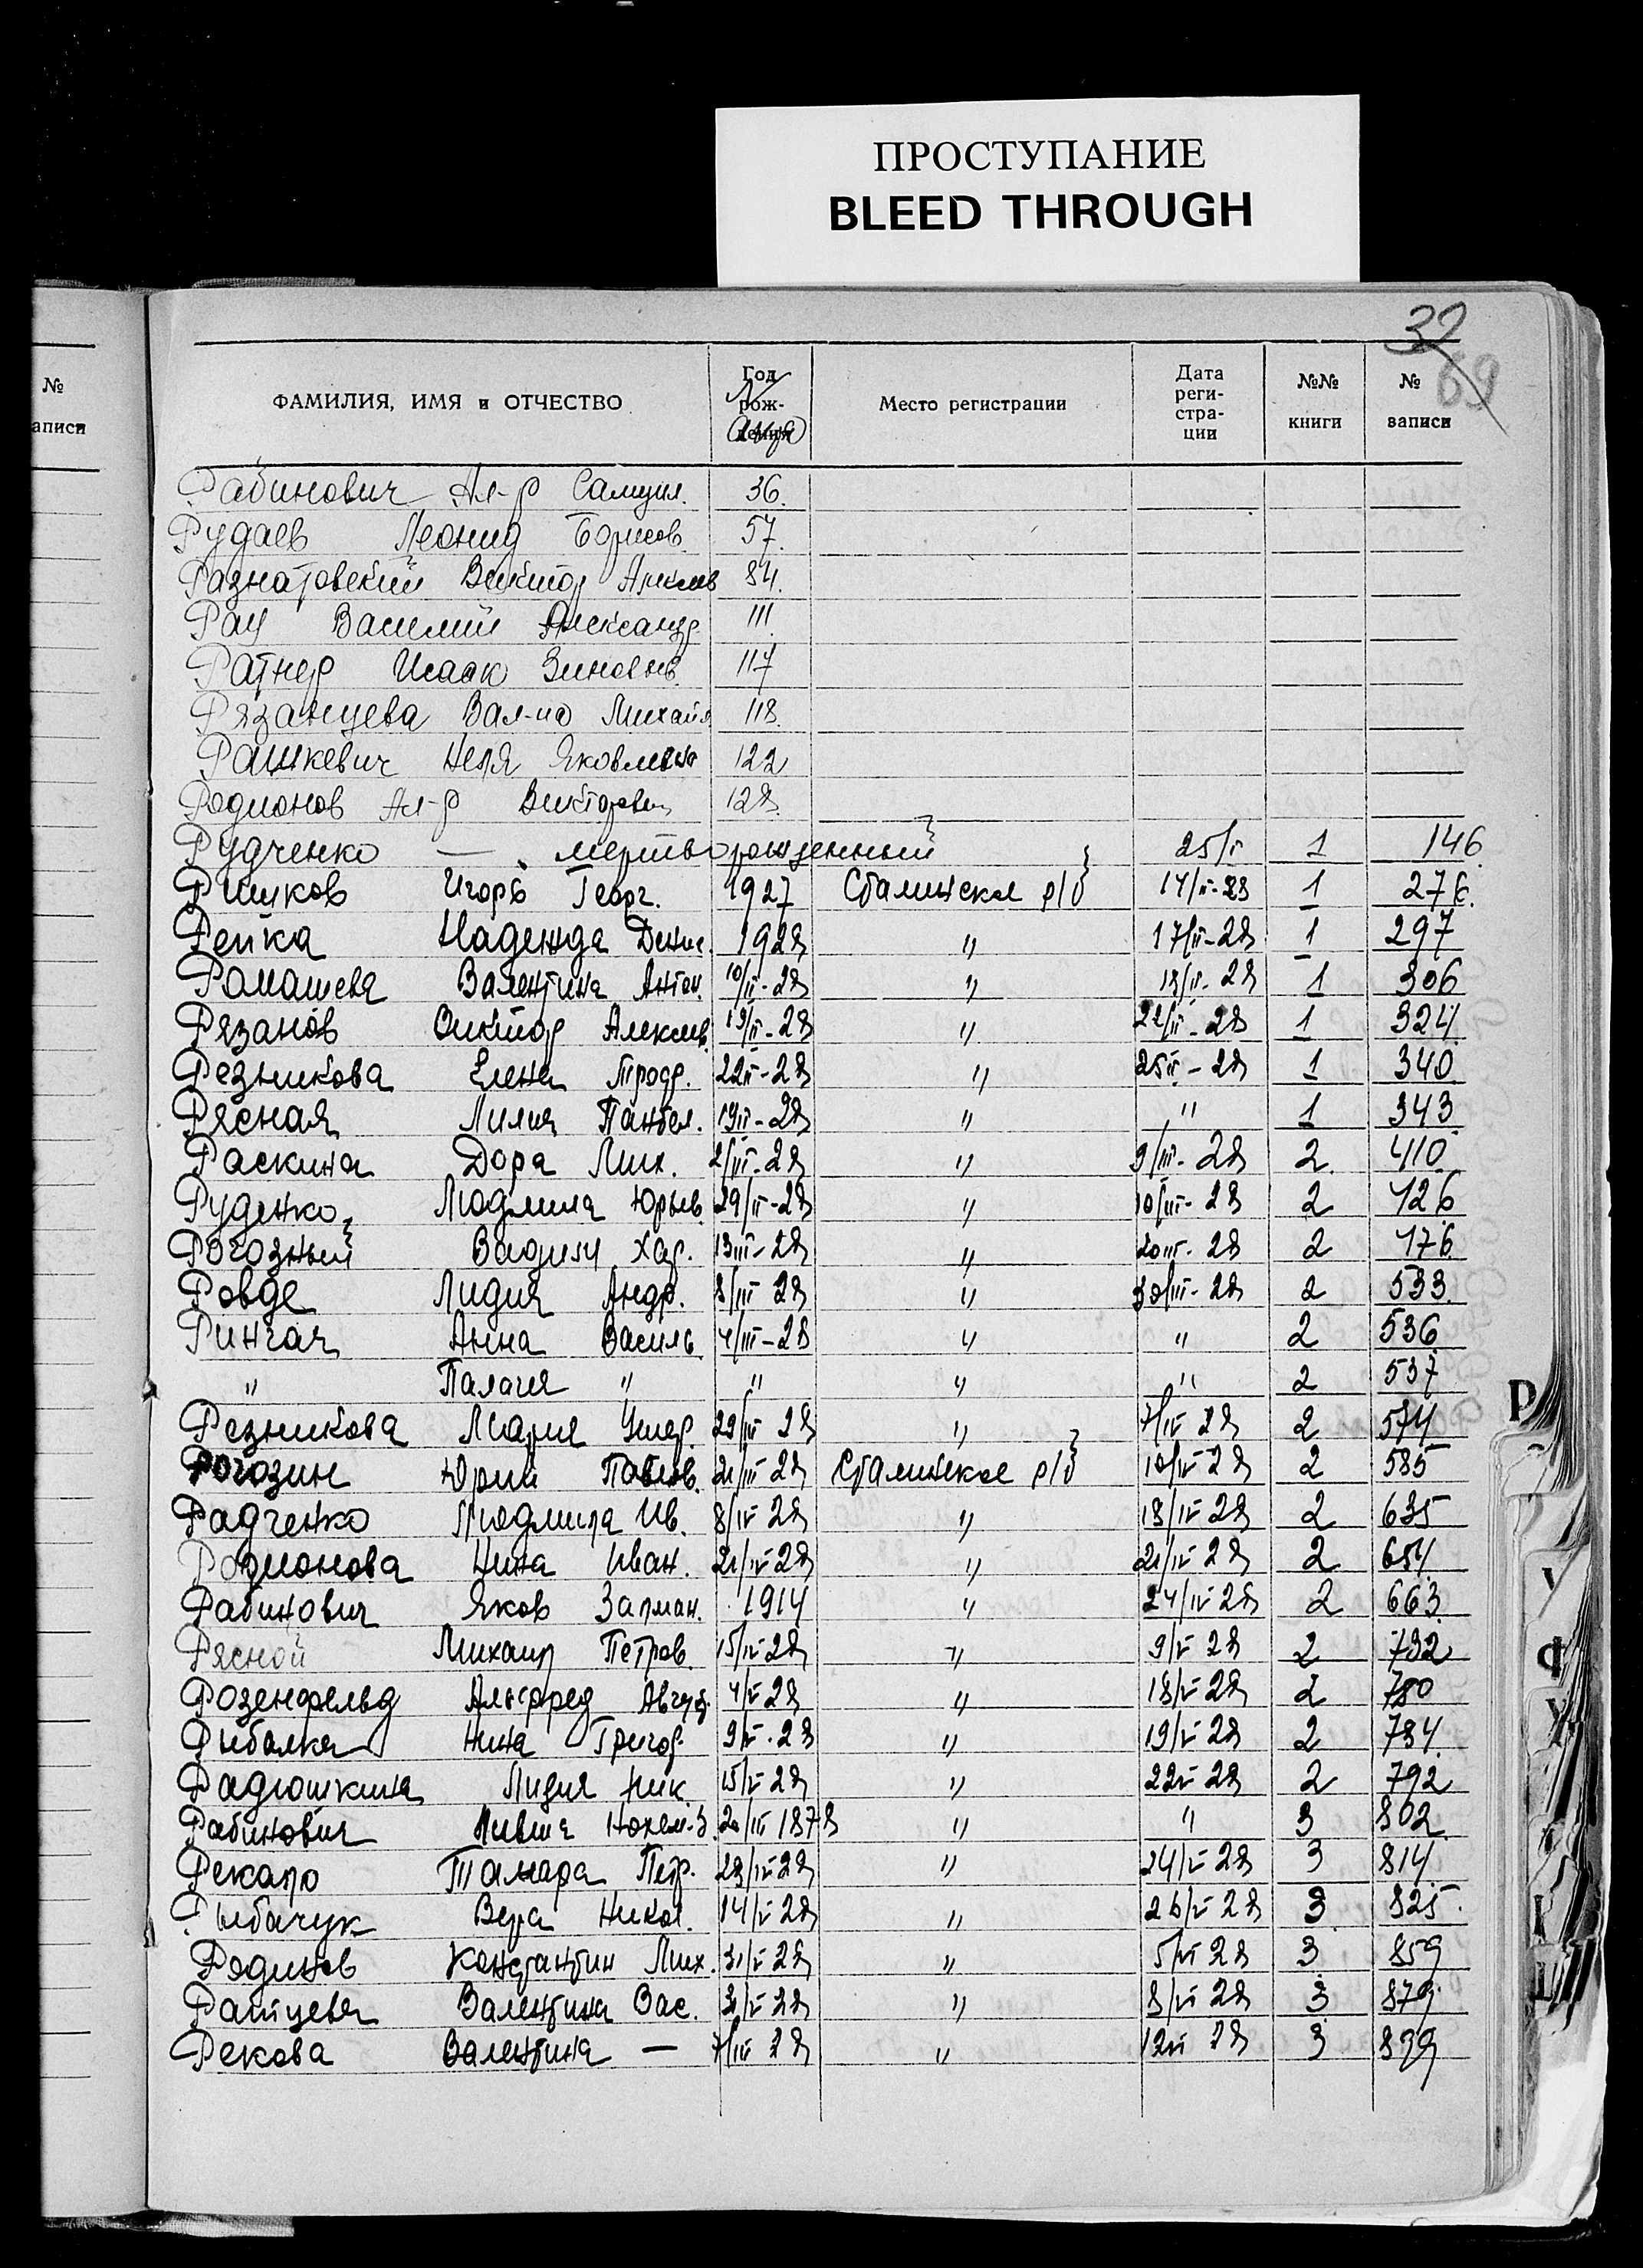 ПРОСТУПАНИЕ
BLEED THROUGH
32
69
№ записи
ФАМИЛИЯ, ИМЯ и ОТЧЕСТВО Год рождения Место регистрации Дата регистрации №№ книги № записи
Рабинович Ал-р Самуил. 36.
Рудаев Леонид Борисов. 57.
Разнатовский Виктор Алексеев 84.
Рац Василий Александр. 111.
Ратнер Исаак Зиновьев. 117
Рязанцева Вал-на Михайл 118.
Рашкевич Неля Яковлевна 122
Родионов Ал-р Викторович 128
Рудченко — мертворожденный 25/I 1 146.
Ришков Игорь Георг. 1927 Сталинское р/б 14/II-28 1 276.
Репка Надежда Денис. 1928 " 17/II-28 1 297
Ромашева Валентина Антон. 10/II-28 " 18/II-28 1 306
Рязанов Виктор Алексеев. 19/II-28 " 22/II-28 1 324
Резникова Елена Профр. 22II-28 " 25II-28 1 340
Рясная Лилия Пантел. 19II-28 " " 1 343
Раскина Дора Мих. 2/III-28 " 9/III-28 2. 410
Руденко Людмила Юрьев. 29/II-28 " 10/III-28 2 426
Рогозный Вадим Хар. 13III-28 " 20III-28 2 476
Ровде Лидия Андр. 8/III 28 " 30/III-28 2 533
Рингач Анна Василь. 4/III-28 " " 2 536
" Палагея " " " " 2 537
Резникова Мария Ушер. 29/III 28 " 7/IV 28 2 574
Рогозин Юрий Павлов. 21/III 28 Сталинское р/б 10/IV 28 2 585
Радченко Людмила Ив. 8/IV 28 " 18/IV 28 2 635
Родионова Нина Иван. 21/IV 28 " 21/IV 28 2 654
Рабинович Яков Залман. 1914 " 24/IV 28 2 663
Рясной Михаил Петров. 15/IV 28 " 9/V 28 2 732
Розенфельд Альфред Август. 4/V 28 " 18/V 28 2 780
Рыбалка Нина Григор. 9V.28 " 19/V 28 2 784
Радюшкина Лидия Ник. 15/V 28 " 22V 28 2 792
Рабинович Нохем-З. 1878 " " 3 802
Рекало Тамара Петр. 28/IV 28 " 24/V 28 3 814
Рыбачук Вера Никол. 14/V 28 " 26/V 28 3 825.
Родинов Константин Мих. 31/V 28 " 5/VI 28 3 859
Ратцева Валентина Вас. 31/V 28 " 8/VI 28 3 879
Рекова Валентина — 7/III 28 " 12VI 28 3 899
Р
У
Ф
Х